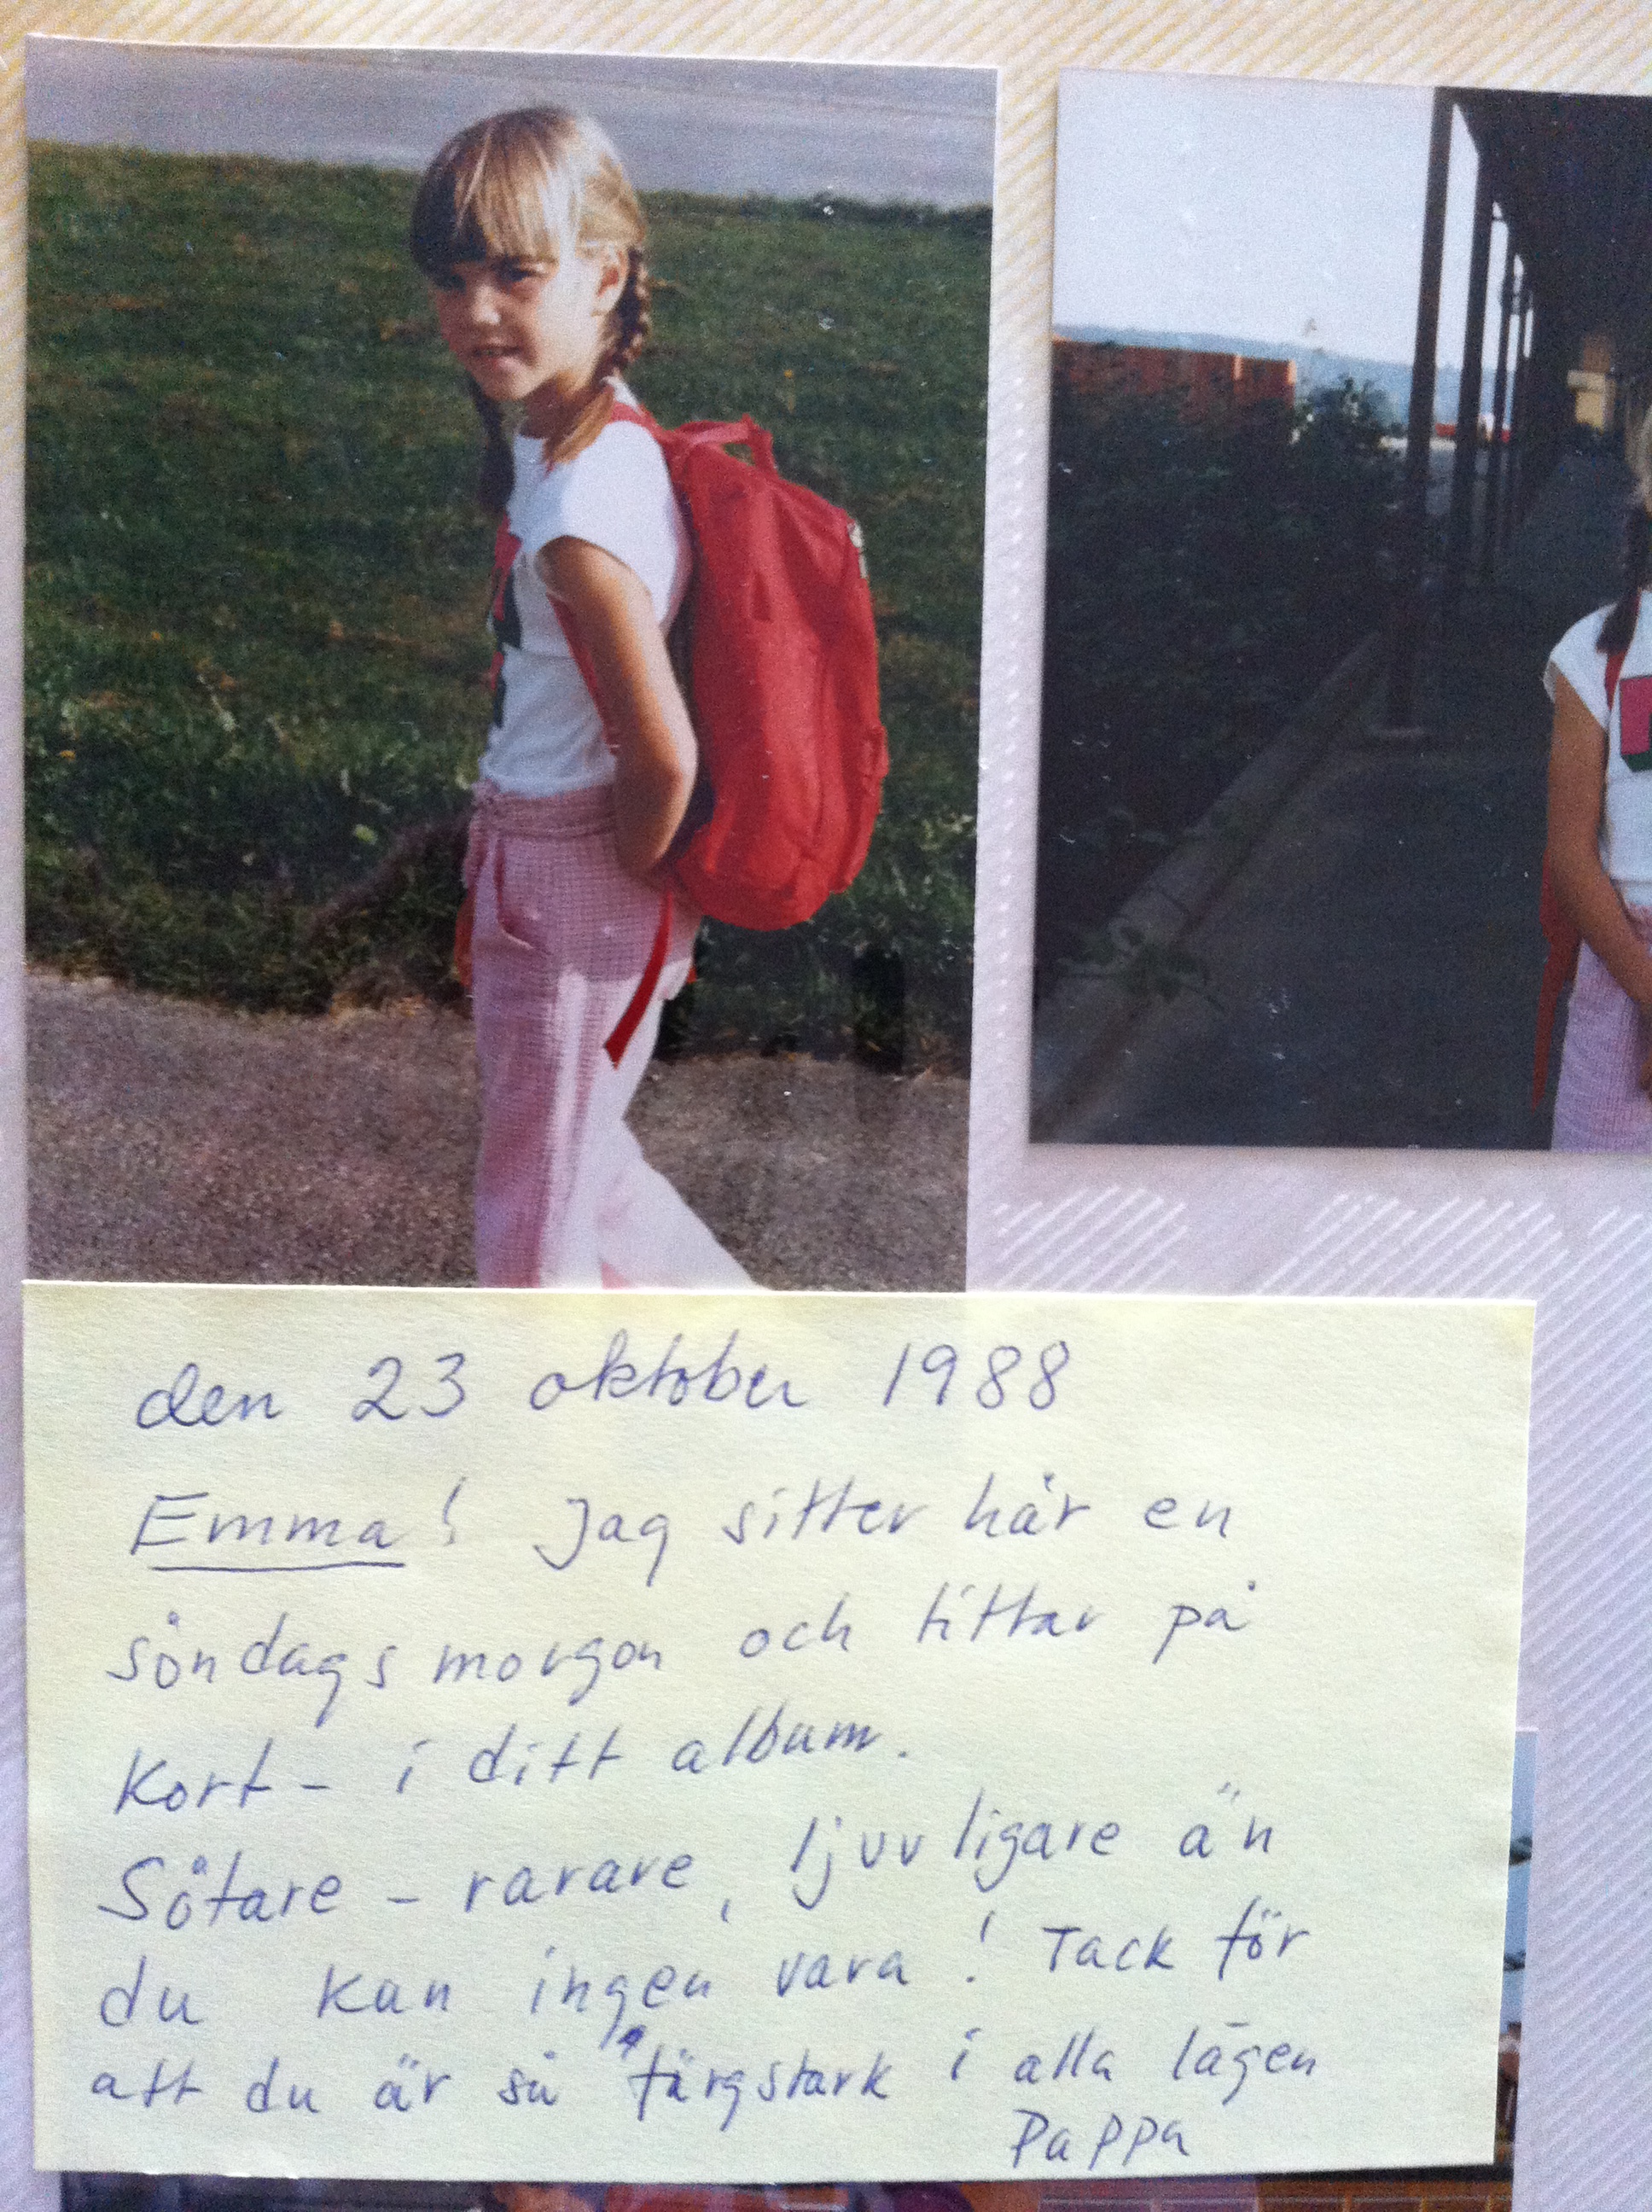 den 23 oktober 1988
Emma! Jag sitter här en
söndagsmorgon och tittar på
kort - i ditt album.
Sötare - rarare, ljuvligare än
du kan ingen vara! Tack för
att du är så färgstark i alla lägen
Pappa